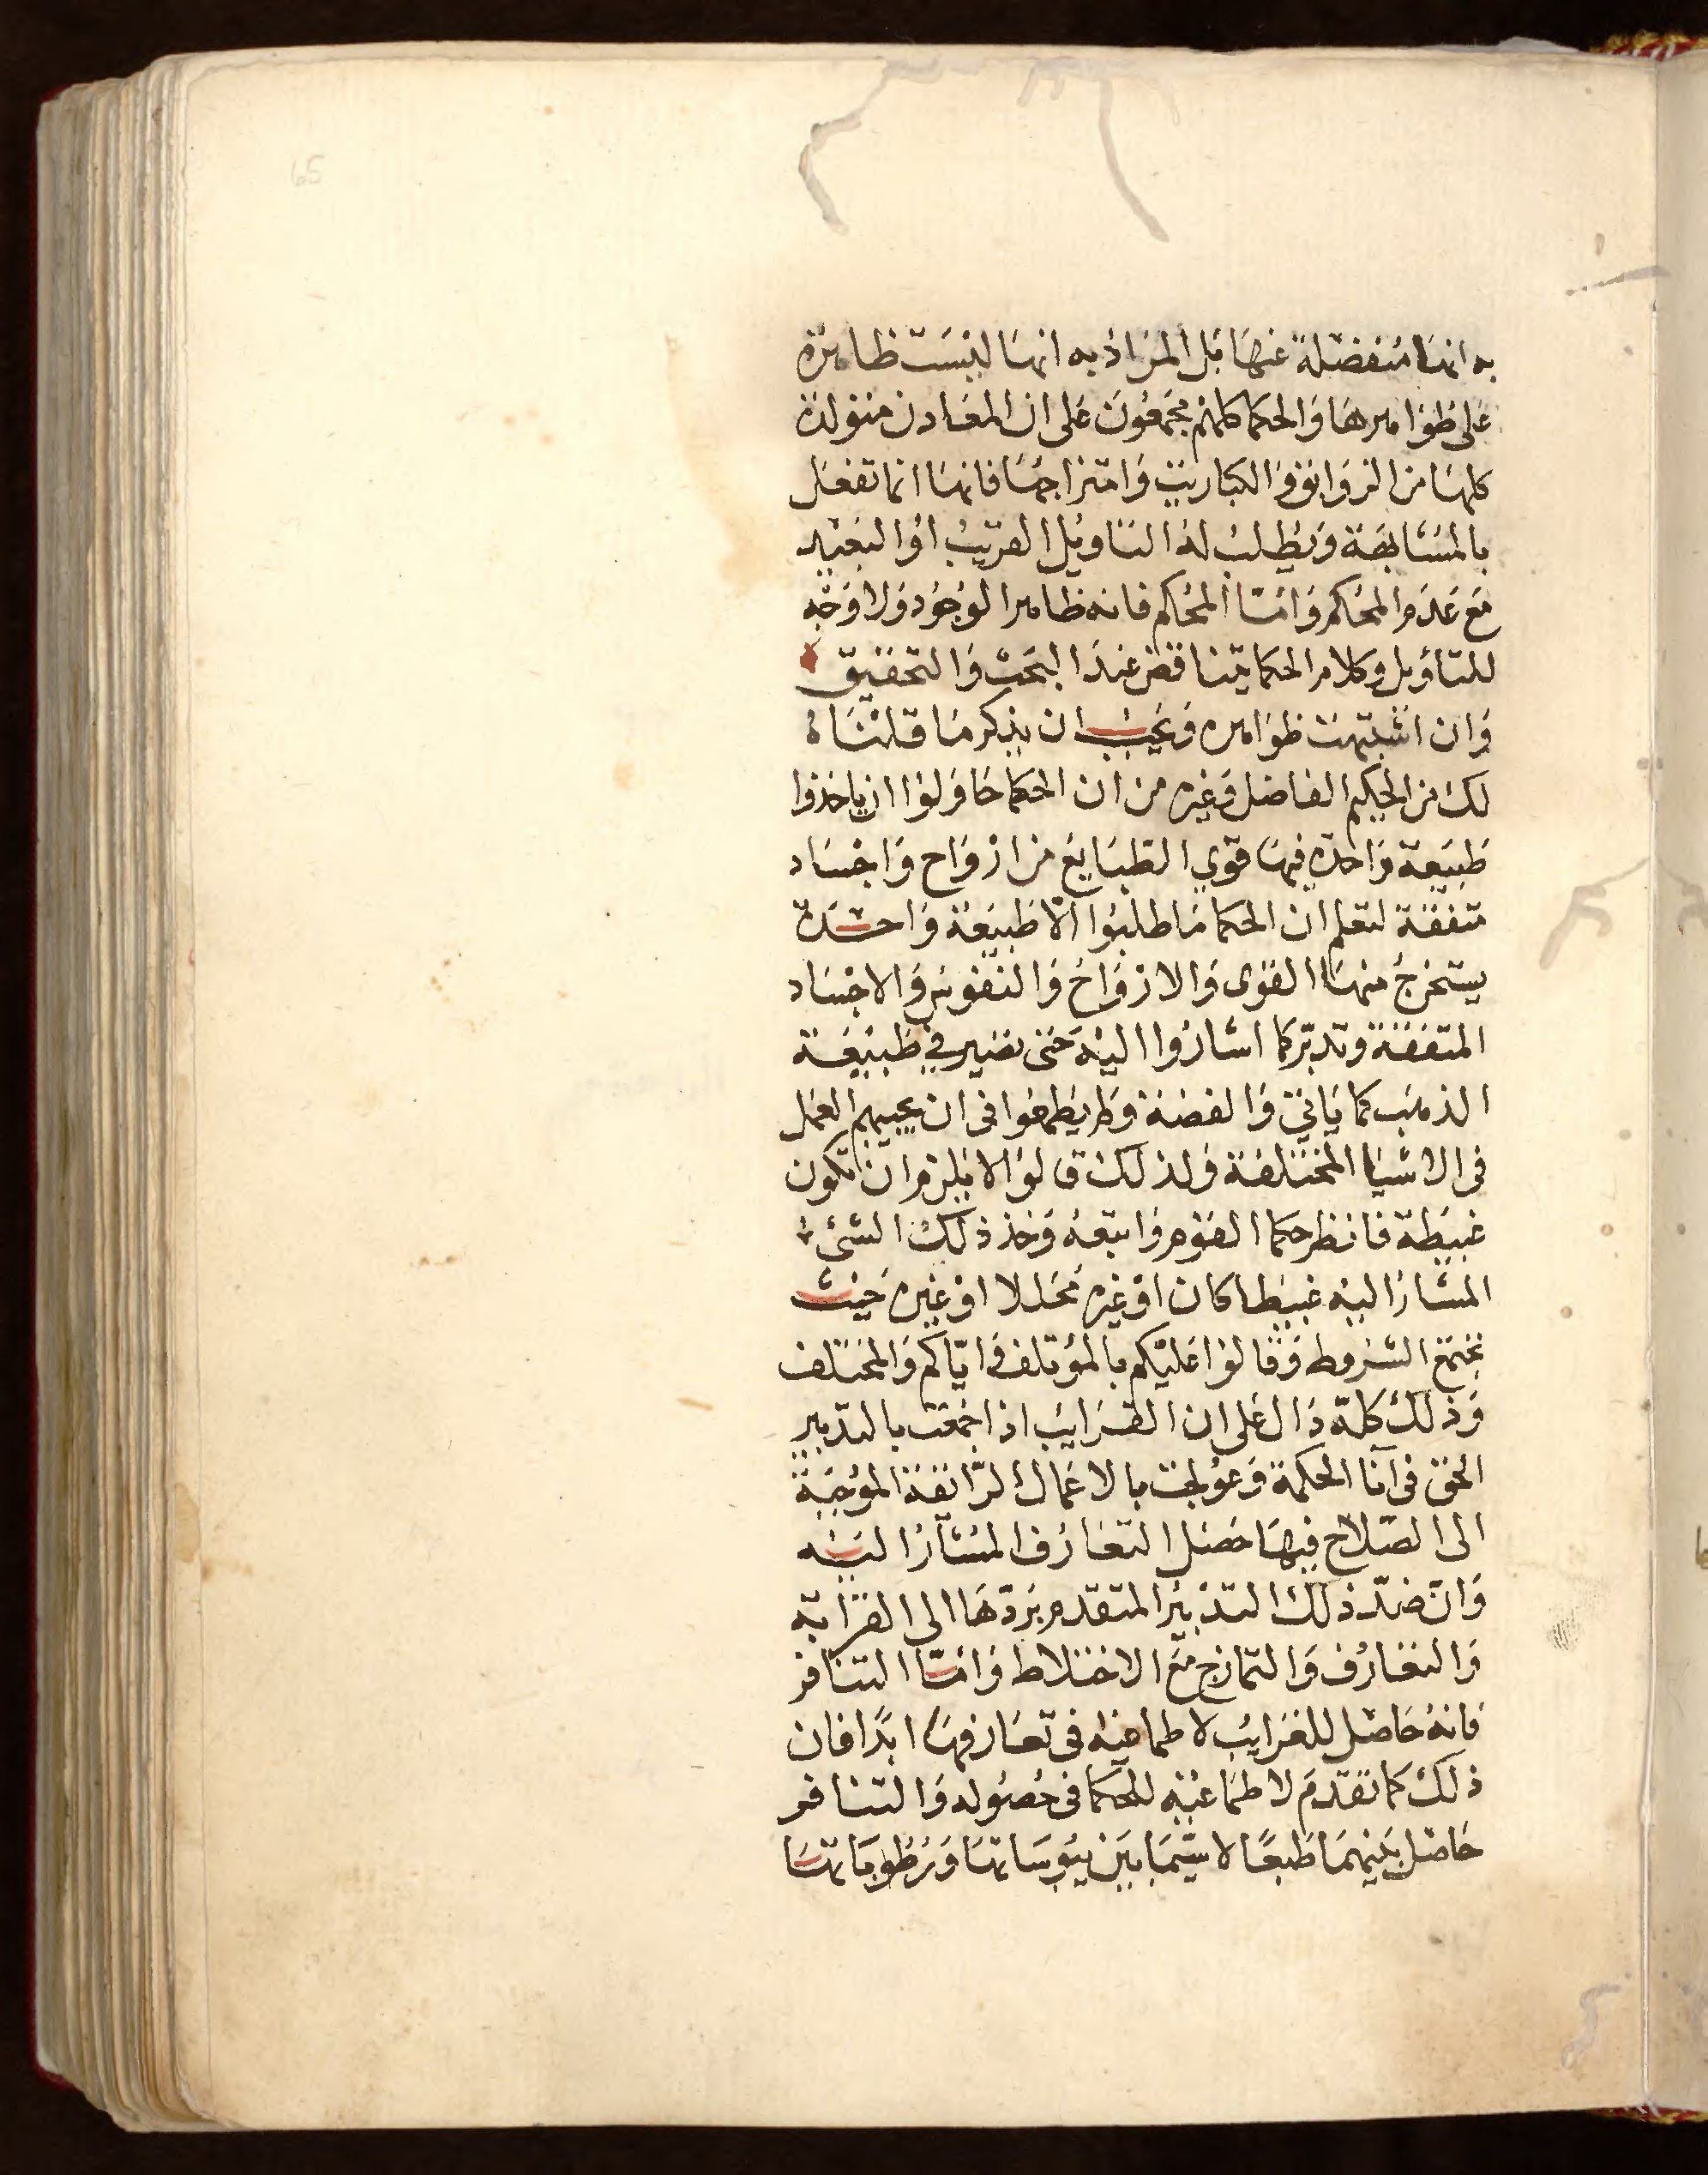 65
به انها منفصلة عنها بل المراد به انها ليست ظاهرة
على ظواهرها والحكما كلهم مجمعون على ان المعادن متولدة
كلها من الزوابق والكباريت وامتزاجها فانها انما تفعل
بالمشابهة ويطلب له التاويل القريب او البعيد
مع عدم المحكم وامّا المحكم فانه ظاهر الوجود ولا وجه
للتاويل وكلام الحكما يتناقض عند البحث والتحقيق
وان اشتبهت ظواهره ويجب ان يذكر ما قلناه
لك من الحكيم الفاضل وغيره من ان الحكما حاولوا ان ياخذوا
طبيعة واحدة فيها قوي الطبايع من ارواح واجساد
متفقة لتعلم ان الحكما ما طلبوا الا طبيعة واحدة
يستخرج منها القوى والارواح والنفوس والاجساد
المتفقة وتدبّر كما اشاروا اليه حتى تصير في طبيعة
الذهب كما ياتي والفضة ولم يطمعوا في ان يجيبهم العمل
في الاشيا المختلفة ولذلك قالوا لا يلزم ان تكون
غبيطة فانظر حكما القوم واتبعه وخذ ذلك الشئ
المشار اليه غبيطا كان او غيره محللا او غيره حيث
تجتمع الشروط وقالوا عليكم بالمؤتلف وايّاكم والمختلف
وذلك كله دال على ان القرايب اذا جمعت بالتدبير
الحق في آنا الحكمة وعولجت بالاعمال الرّائقة الموجبة
الى الصّلاح فيها حصل التعارف المشار اليه
وان ضدّ ذلك التدبير المتقدم يردّها الى الغرابة
والتعارف والتمازج مع الاختلاط وامّا التنافر
فانه حاصل للغرايب لا طماعية في تعارفها ابدًا فان
ذلك كما تقدم لا طماعية للحكما في حصوله والتنافر
حاصل بينهما طبعًا لا سيّما بين يبوساتها ورطوباتها